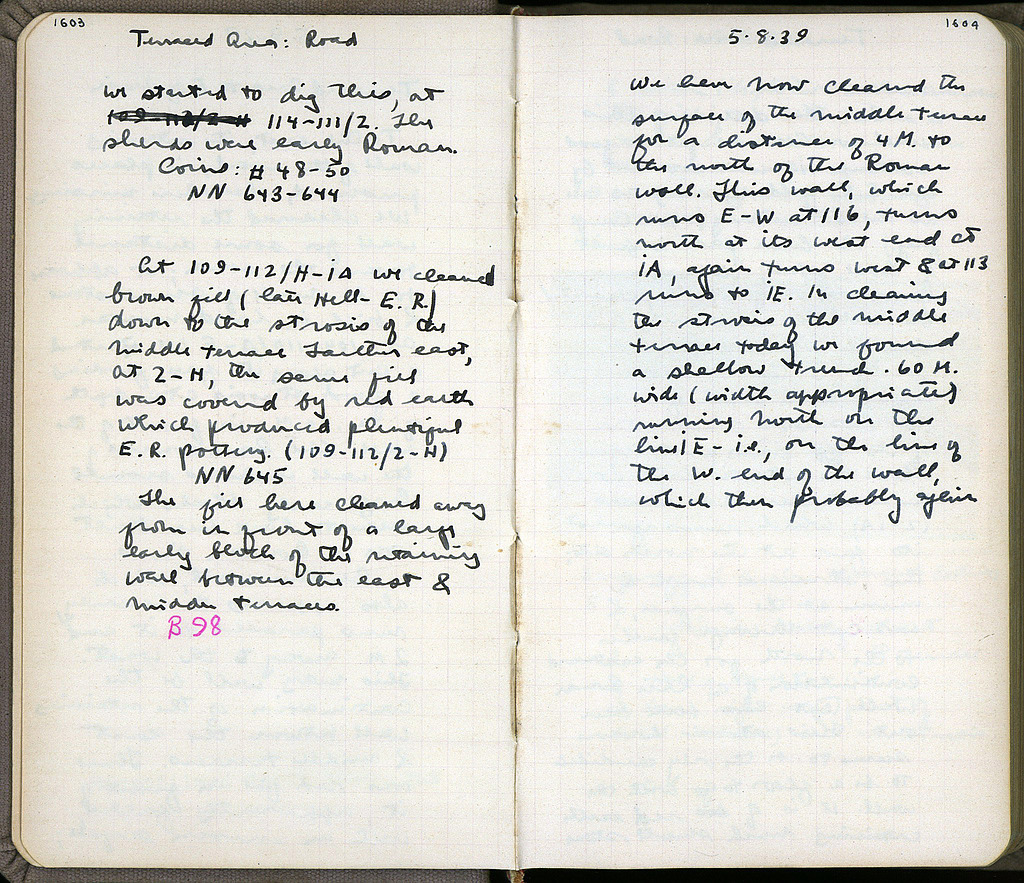 1603
Terraced Area: Road
We started to dig this, at
109-112/2-H 114-111/2. The
sherds were early Roman.
Coins: # 48-50
NN 643-644
At 109-112/H-IA we cleaned
brown fill (late Hell- E.R.)
down to the strosis of the
middle terrace. Farther east,
at 2-H, the same fill
was covered by red earth
which produced plentiful
E.R. pottery. (109-112/2-H)
NN 645
The fill here cleaned away
from in front of a large
early block of the retaining
wall between the east &
middle terraces.
B 98
1604
5.8.39
We have now cleared the
surface of the middle terrace
for a distance of 4 M. to
the north of the Roman
wall. This wall, which
runs E-W at 116, turns
north at its west end at
IA, again turns west & at 113
runs to IE. In cleaning
the strosis of the middle
terrace today we found
a shallow trench .60 M.
wide (width appropriate)
running north on the
line IE - i.e., on the line of
the W. end of the wall,
which then probably again